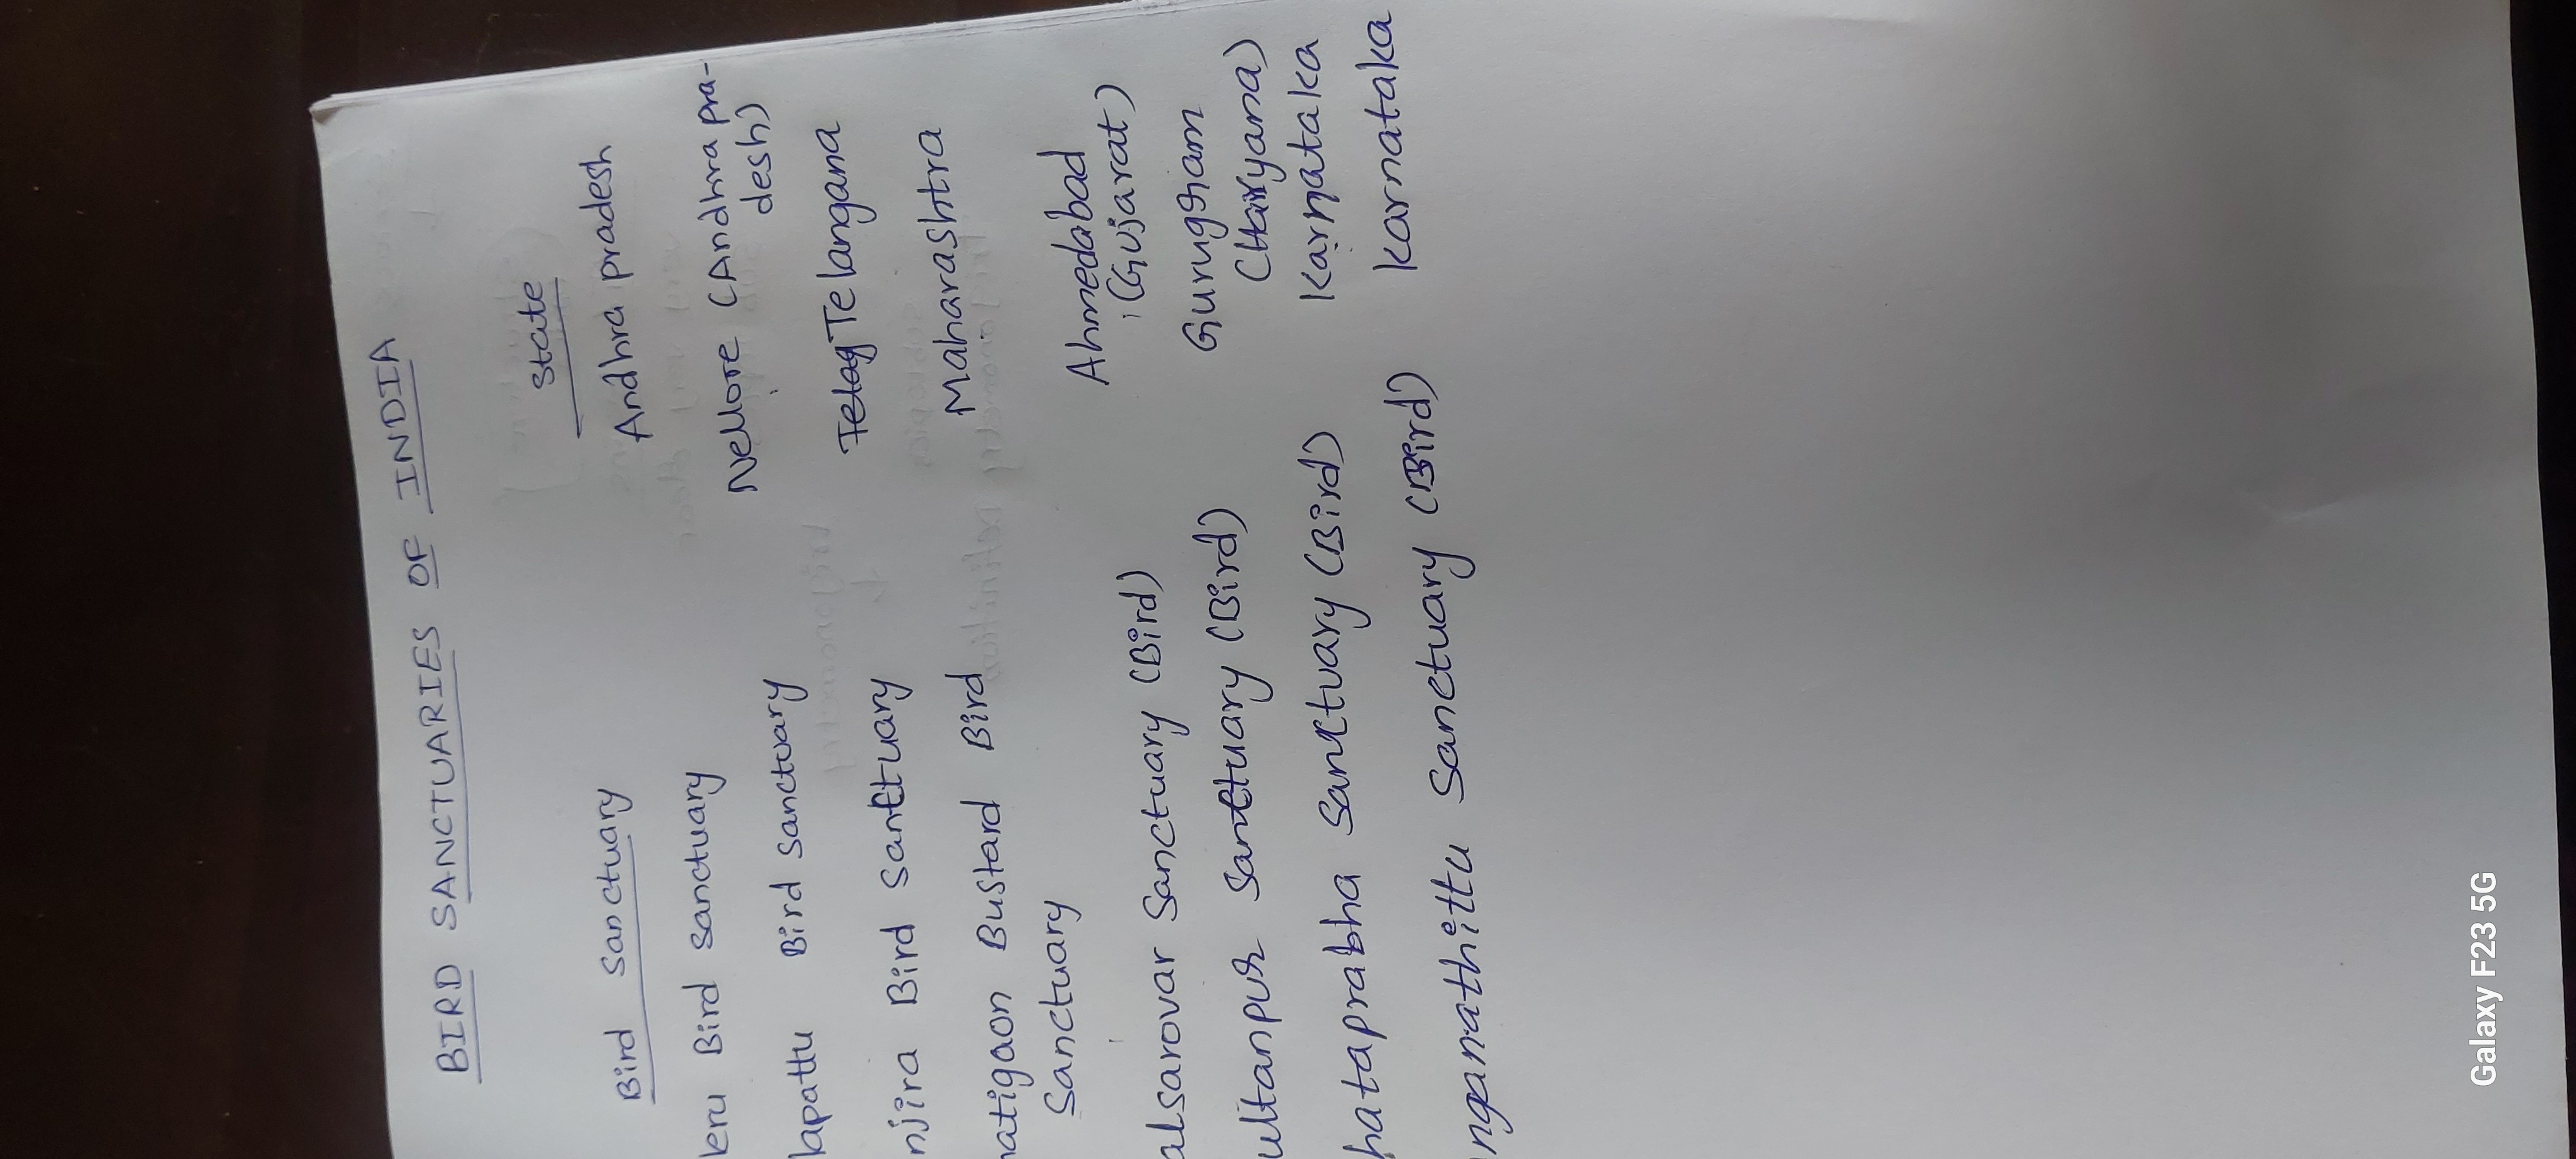 BIRD SANCTUARIES OF INDIA
Bird Sanctuary State
leru Bird Sanctuary Andhra pradesh
lapattu Bird Sanctuary Nellore (Andhra pra-
desh)
njira Bird Sanctuary Telangana
natigaon Bustard Bird Maharashtra
Sanctuary
alsarovar Sanctuary (Bird) Ahmedabad
(Gujarat)
ultanpur Sanctuary (Bird) Gurugram
(Haryana)
hataprabha Sanctuary (Bird) Karnataka
nganathittu Sanctuary (Bird) Karnataka
Galaxy F23 5G